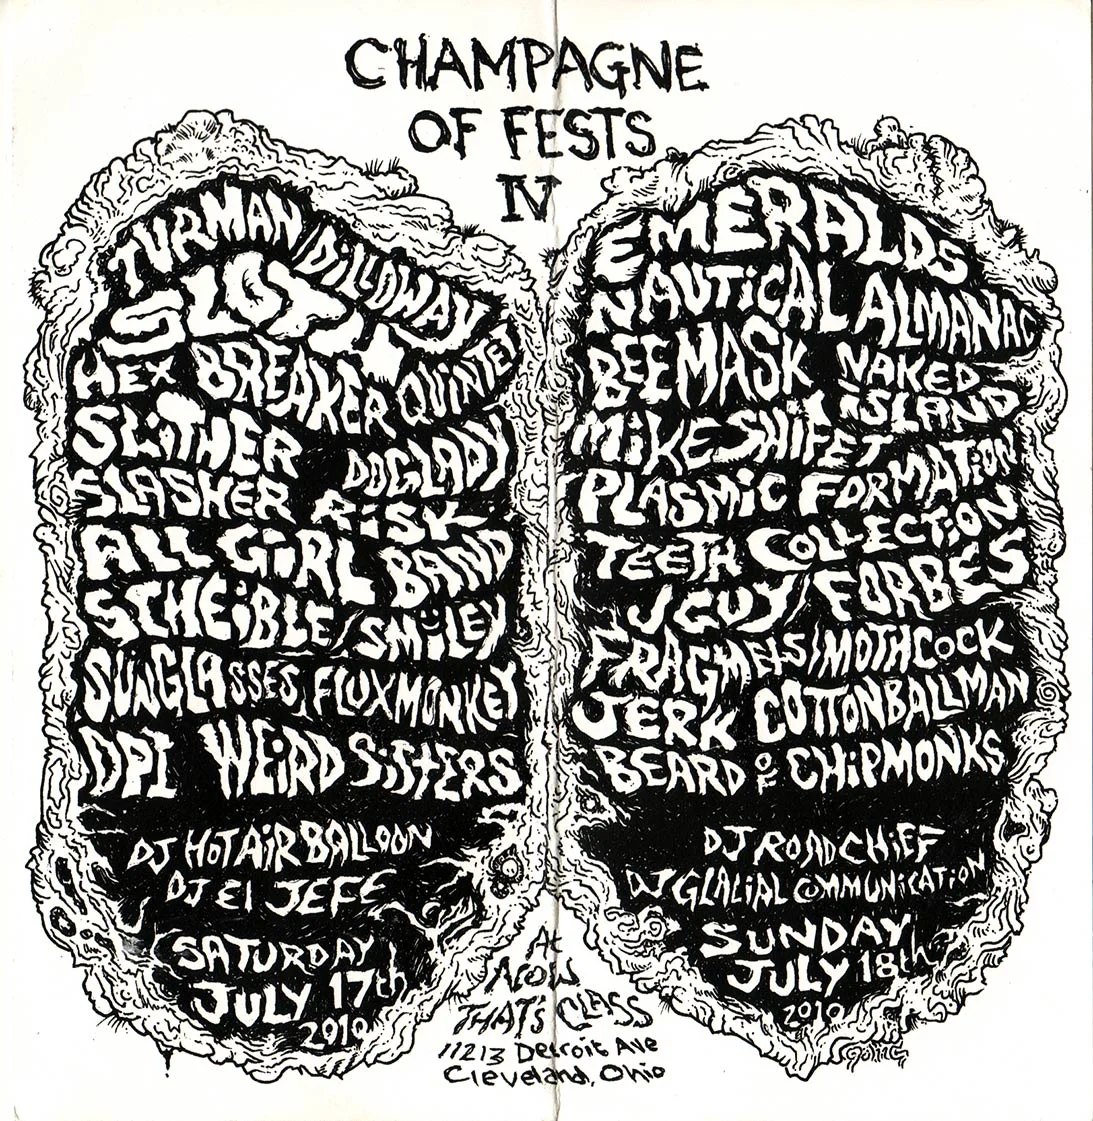 CHAMPAGNE
OF FESTS
IV
TURMAN/DILLOWAY
SLOTH
HEX BREAKER QUINTET
SLiTHER DOGLADY
SLASHER RiSK
ALL GiRL BAND
SCHEiBLE/SMiLEY
SUNGLASSES, FLUXMONKEY
DPI WEiRD SiSTERS
DJ HOT AiR BALLOON
DJ El JEFE
SATURDAY
JULY 17th
2010
EMERALDS
NAUTiCAL ALMANAC
BEE MASK NAKED
iSLAND
MiKE SHiFLET
PLASMiC FORMATiON
TEETH COLLECTiON
J GUY/FORBES
FRAGMENTS/MOTHCOCK
JERK COTTONBALLMAN
BEARD OF CHiPMONKS
DJ ROADCHiEF
DJ GLACiAL COMMUNiCATiON
SUNDAY
JULY 18th
2010
At
NOW
THATS CLASS
11213 Detroit Ave
Cleveland, Ohio